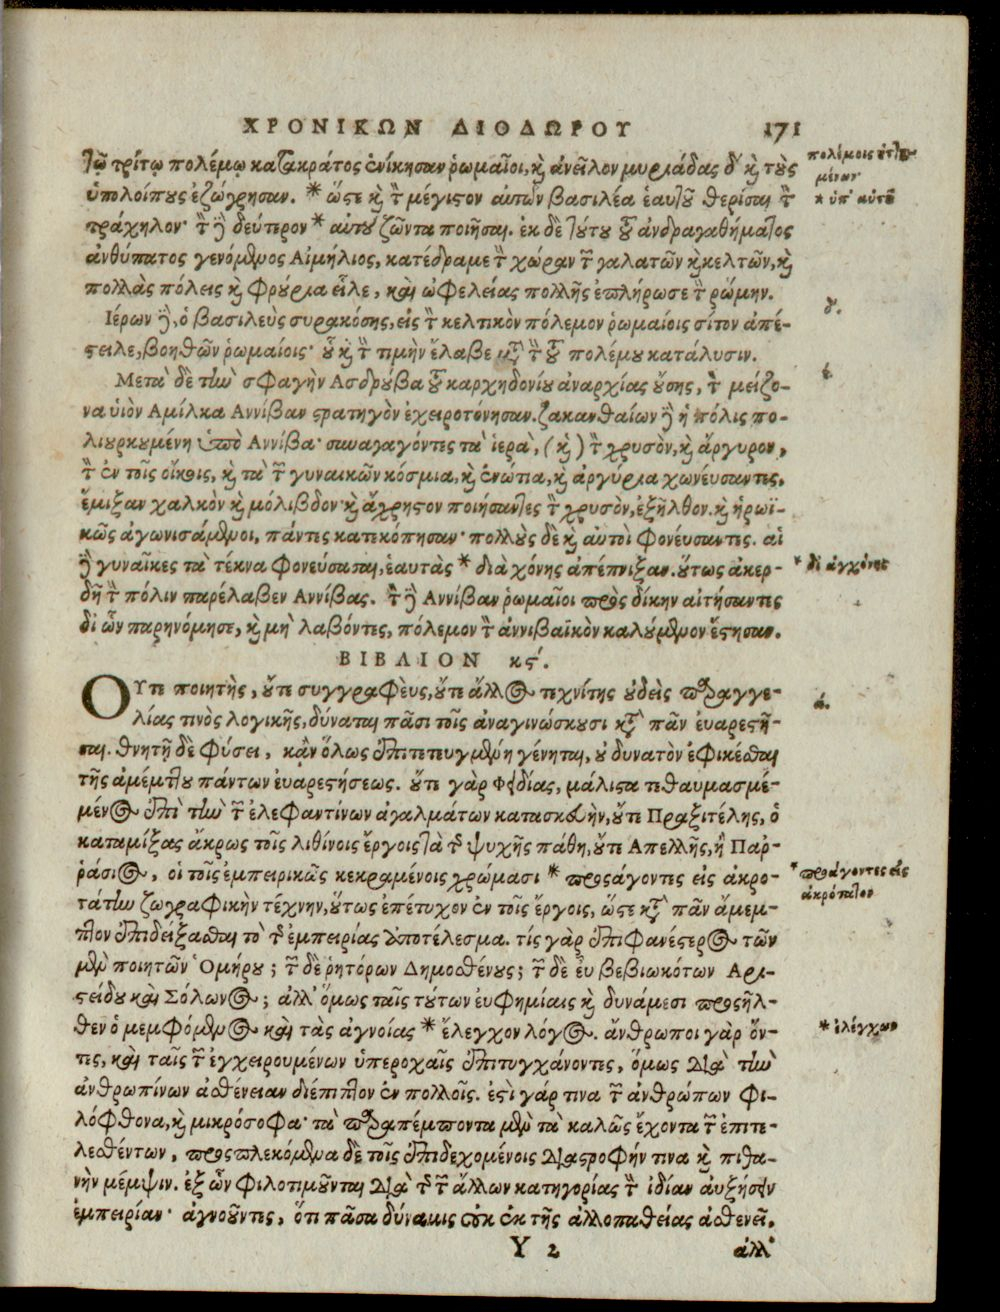 ΧΡΟΝΙΚΩΝ ΔΙΟΔΩΡΟΥ 171
τῷ τρίτῳ πολέμῳ κατακράτος ἐνίκησαν ῥωμαῖοι, καὶ ἀνεῖλον μυριάδας δʹ καὶ τοὺς
ὑπολοίπους ἐζώγρησαν. * ὥστε καὶ τὸν μέγιστον αὐτῶν βασιλέα ἑαυτοῦ θερίσαι τὸν
τράχηλον· τὸν δὲ δεύτερον * αὐτοῦ ζῶντα ποιῆσαι. ἐκ δὲ τούτου τοῦ ἀνδραγαθήματος
ἀνθύπατος γενόμενος Αἰμήλιος, κατέδραμε τὴν χώραν τῶν γαλατῶν καὶ κελτῶν, καὶ
πολλὰς πόλεις καὶ φρούρια εἷλε, καὶ ὠφελείας πολλῆς ἐπλήρωσε τὴν ῥώμην.
Ιέρων δὲ, ὁ βασιλεὺς συρακόσης, εἰς τὸν κελτικὸν πόλεμον ῥωμαίοις σίτον ἀπέ-
στειλε, βοηθῶν ῥωμαίοις· οὗ καὶ τὴν τιμὴν ἔλαβε μετὰ τὴν τοῦ πολέμου κατάλυσιν.
Μετὰ δὲ τὴν σφαγὴν Ασδρούβα τοῦ καρχηδονίου ἀναρχίας οὔσης, τὸν μείζο-
να ὑιὸν Αμίλκα Αννίβαν στρατηγὸν ἐχειροτόνησαν. ζακανθαίων δὲ ἡ πόλις πο-
λιορκουμένη ὑπὸ Αννίβα· συναγαγόντες τὰ ἱερὰ, (καὶ) τὸν χρυσὸν, καὶ ἄργυρον,
τὸν ἐν τοῖς οἴκοις, καὶ τὰ τῶν γυναικῶν κόσμια, καὶ ἐνώτια, καὶ ἀργύρια χωνεύσαντες,
ἔμιξαν χαλκὸν καὶ μόλιβδον· καὶ ἄχρηστον ποιήσαντες τὸν χρυσὸν, ἐξῆλθον. καὶ ἡρωϊ-
κῶς ἀγωνισάμενοι, πάντες κατεκόπησαν· πολλοὺς δὲ καὶ αὐτοὶ φονέυσαντες. αἱ
δὲ γυναῖκες τὰ τέκνα φονεύσασαι, ἑαυτὰς * διὰ χόνης ἀπέπνιξαν. οὕτως ἀκερ-
δῆ τὴν πόλιν παρέλαβεν Αννίβας. τὸν δὲ Αννίβαν ῥωμαῖοι πρὸς δίκην αἰτήσαντες
δι ὧν παρηνόμησε, καὶ μὴ λαβόντες, πόλεμον τὸν ἀννιβαϊκὸν καλούμενον ἔστησαν.
ΒΙΒΛΙΟΝ κϛʹ.
Οὔτε ποιητὴς, οὔτε συγγραφὲυς, οὔτε ἄλλος τεχνίτης οὐδεὶς παραγγε-
λίας τινὸς λογικῆς, δύναται πᾶσι τοῖς ἀναγινώσκουσι κατὰ πᾶν ἐυαρεστῆ-
σαι. θνητῇ δὲ φύσει, κᾂν ὅλως ἐπιτετευγμένη γένηται, οὐ δυνατὸν ἐφικέσθαι
τῆς ἀμέμπτου πάντων ἐυαρεστήσεως. οὔτε γὰρ Φειδίας, μάλιστα τεθαυμασμέ-
μένος ἐπὶ τὴν τῶν ἐλεφαντίνων ἀγαλμάτων κατασκευὴν, οὔτε Πραξιτέλης, ὁ
καταμίξας ἄκρως τοῖς λιθίνοις ἔργοις τὰ τῆς ψυχῆς πάθη, οὔτε Απελλῆς, ἢ Παρ-
ῥάσιος, οἱ τοῖς ἐμπειρικῶς κεκραμένοις χρώμασι * προσάγοντες εἰς ἀκρο-
τάτην ζωγραφικὴν τέχνην, οὕτως ἐπέτυχον ἐν τοῖς ἔργοις, ὥστε κατὰ πᾶν ἄμεμ-
πτον ἐπιδείξασθαι τὸ τῆς ἐμπειρίας ἀποτέλεσμα. τίς γὰρ ἐπιφανέστερος τῶν
μὲν ποιητῶν Ὁμήρου; τῶν δὲ ῥητόρων Δημοσθένους; τῶν δὲ ἐυ βεβιωκότων Αρι-
στείδου καὶ Σόλωνος; ἀλλ' ὅμως ταῖς τούτων ἐυφημίαις καὶ δυνάμεσι προσῆλ-
θεν ὁ μεμφόμενος καὶ τὰς ἀγνοίας * ἔλεγχον λόγος. ἄνθρωποι γὰρ ὄν-
τες, καὶ ταῖς τῶν ἐγχειρουμένων ὑπεροχαῖς ἐπιτυγχάνοντες, ὅμως διὰ τὴν
ἀνθρωπίνων ἀσθένειαν διέπιπτον ἐν πολλοῖς. ἐστὶ γάρ τινα τῶν ἀνθρώπων φι-
λόφθονα, καὶ μικρόσοφα· τὰ παραπέμποντα μὲν τὰ καλῶς ἔχοντα τῶν ἐπιτε-
λεσθέντων, προσπλεκόμενα δὲ τοῖς ἐπιδεχομένοις διαστροφήν τινα καὶ πιθα-
νὴν μέμψιν. ἐξ ὧν φιλοτιμοῦνται διὰ τῆς τῶν ἄλλων κατηγορίας τὴν ἰδίαν αὐξήσειν
ἐμπειρίαν· ἀγνοοῦντες, ὅτι πᾶσα δύναμις οὐκ ἐκ τῆς ἀλλοπαθείας ἀσθενεῖ,
Υ 2 ἀλλ'
πολέμοις
μένων
* ὑπ' αὐτοῦ
δ.
έ.
* δι ἀγχόνης
ά.
* προάγοντες εἰς
ἀκρότατον
* ἐλέγχων